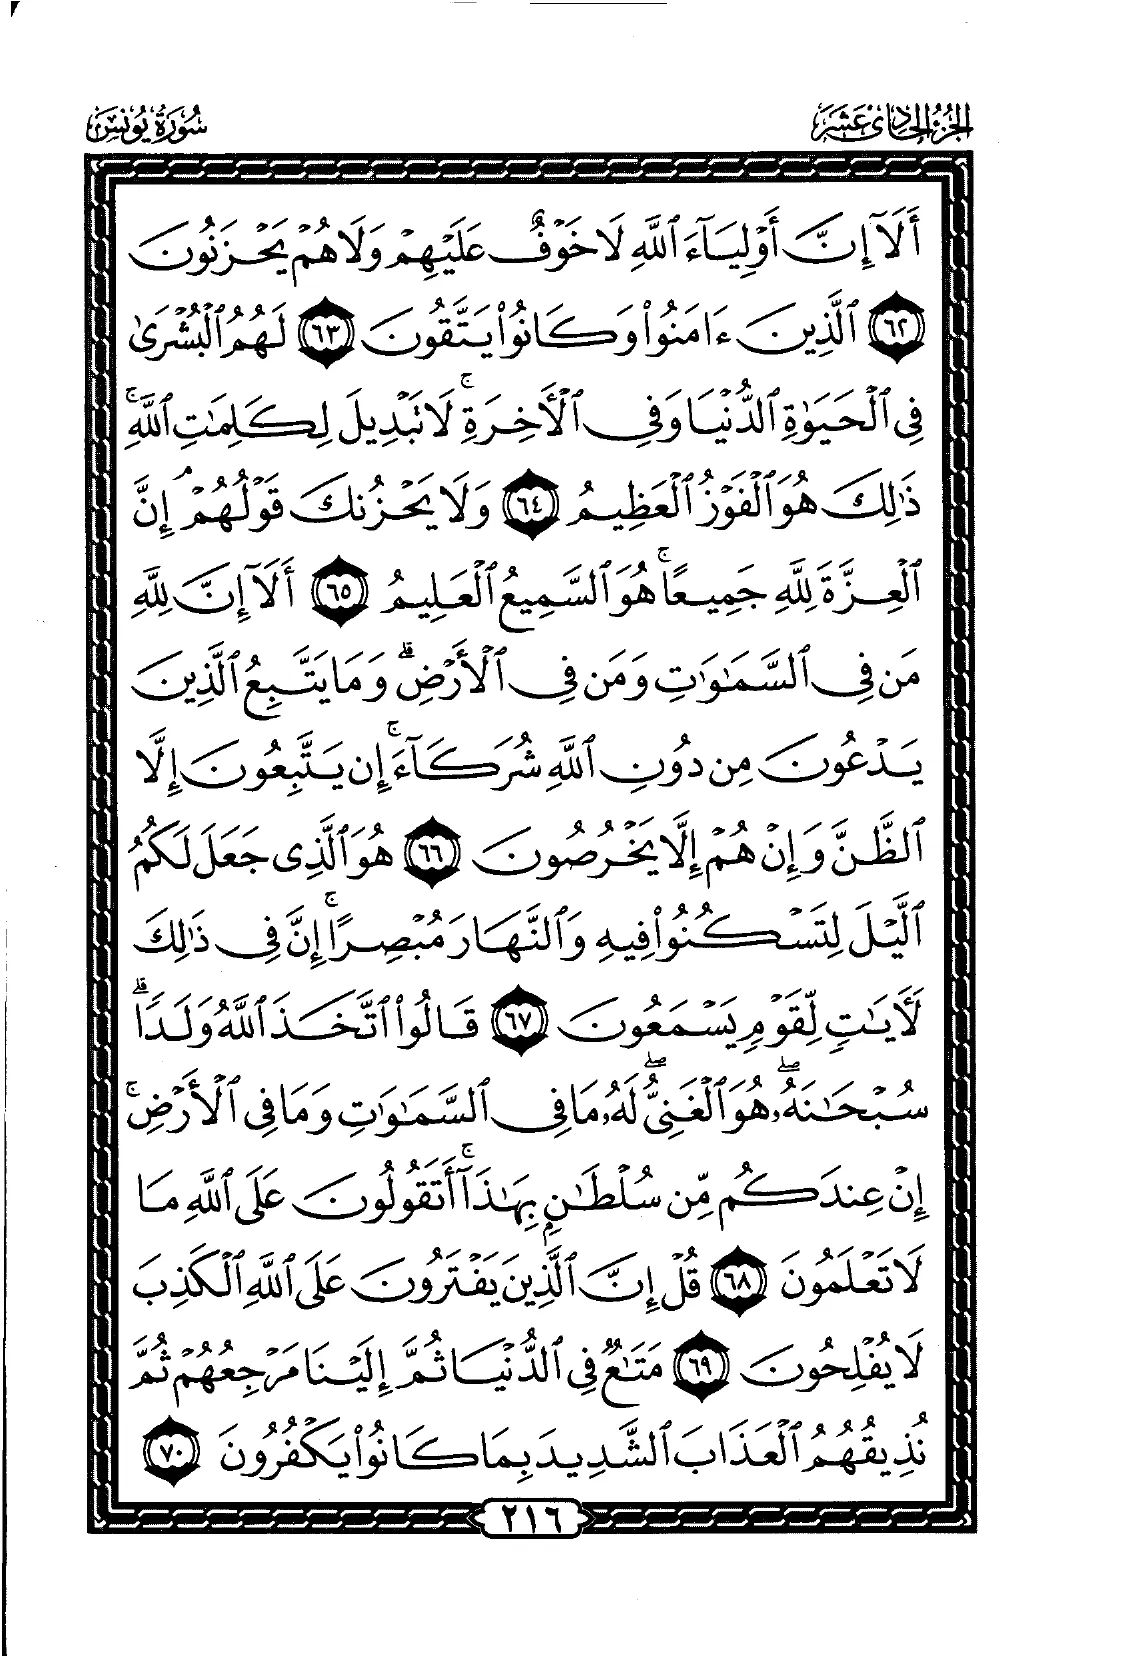 الجزء الحادي عشر
سورة يونس
أَلَآ إِنَّ أَوْلِيَآءَ ٱللَّهِ لَا خَوْفٌ عَلَيْهِمْ وَلَا هُمْ يَحْزَنُونَ
﴿٦٢﴾ ٱلَّذِينَ ءَامَنُوا۟ وَكَانُوا۟ يَتَّقُونَ ﴿٦٣﴾ لَهُمُ ٱلْبُشْرَىٰ
فِى ٱلْحَيَوٰةِ ٱلدُّنْيَا وَفِى ٱلْأَخِرَةِ ۚ لَا تَبْدِيلَ لِكَلِمَٰتِ ٱللَّهِ ۚ
ذَٰلِكَ هُوَ ٱلْفَوْزُ ٱلْعَظِيمُ ﴿٦٤﴾ وَلَا يَحْزُنكَ قَوْلُهُمْ ۘ إِنَّ
ٱلْعِزَّةَ لِلَّهِ جَمِيعًا ۚ هُوَ ٱلسَّمِيعُ ٱلْعَلِيمُ ﴿٦٥﴾ أَلَآ إِنَّ لِلَّهِ
مَن فِى ٱلسَّمَٰوَٰتِ وَمَن فِى ٱلْأَرْضِ ۗ وَمَا يَتَّبِعُ ٱلَّذِينَ
يَدْعُونَ مِن دُونِ ٱللَّهِ شُرَكَآءَ ۚ إِن يَتَّبِعُونَ إِلَّا
ٱلظَّنَّ وَإِنْ هُمْ إِلَّا يَخْرُصُونَ ﴿٦٦﴾ هُوَ ٱلَّذِى جَعَلَ لَكُمُ
ٱلَّيْلَ لِتَسْكُنُوا۟ فِيهِ وَٱلنَّهَارَ مُبْصِرًا ۚ إِنَّ فِى ذَٰلِكَ
لَأَيَٰتٍ لِّقَوْمٍ يَسْمَعُونَ ﴿٦٧﴾ قَالُوا۟ ٱتَّخَذَ ٱللَّهُ وَلَدًا ۗ
سُبْحَٰنَهُۥ ۖ هُوَ ٱلْغَنِىُّ ۖ لَهُۥ مَا فِى ٱلسَّمَٰوَٰتِ وَمَا فِى ٱلْأَرْضِ ۚ
إِنْ عِندَكُم مِّن سُلْطَٰنٍۭ بِهَٰذَآ ۚ أَتَقُولُونَ عَلَى ٱللَّهِ مَا
لَا تَعْلَمُونَ ﴿٦٨﴾ قُلْ إِنَّ ٱلَّذِينَ يَفْتَرُونَ عَلَى ٱللَّهِ ٱلْكَذِبَ
لَا يُفْلِحُونَ ﴿٦٩﴾ مَتَٰعٌ فِى ٱلدُّنْيَا ثُمَّ إِلَيْنَا مَرْجِعُهُمْ ثُمَّ
نُذِيقُهُمُ ٱلْعَذَابَ ٱلشَّدِيدَ بِمَا كَانُوا۟ يَكْفُرُونَ ﴿٧٠﴾
٢١٦